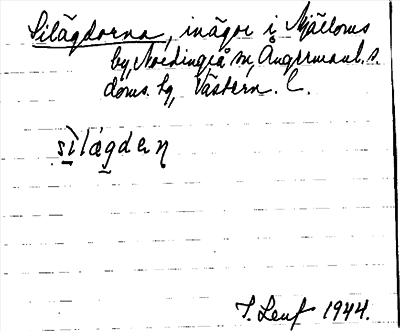 Silägdorna, inägor i Mjälloms
by, Nordingrå sn, Ångermanl. s.
doms. hg, Västern. l.
sìlägden
1944.